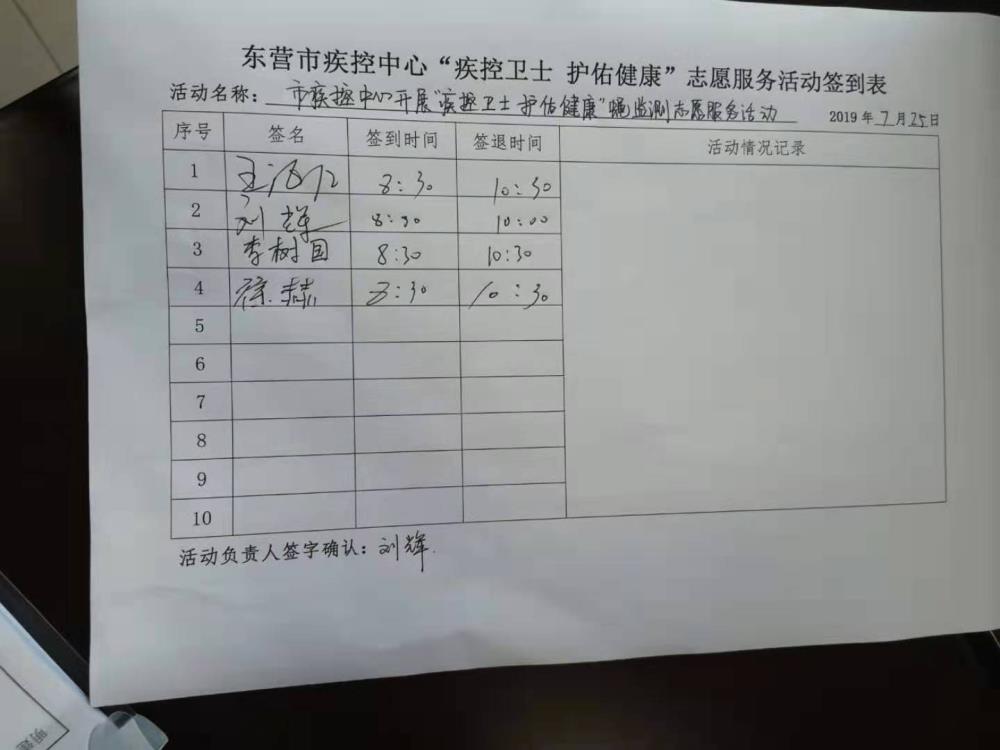 东营市疾控中心“疾控卫士 护佑健康”志愿服务活动签到表
活动名称：市疾控中心开展“疾控卫士 护佑健康”蝇监测志愿服务活动 2019年7月25日
序号 签名 签到时间 签退时间 活动情况记录
1 8:30 10:30
2 刘辉 8:30 10:00
3 李树国 8:30 10:30
4 8:30 10:30
5
6
7
8
9
10
活动负责人签字确认：刘辉